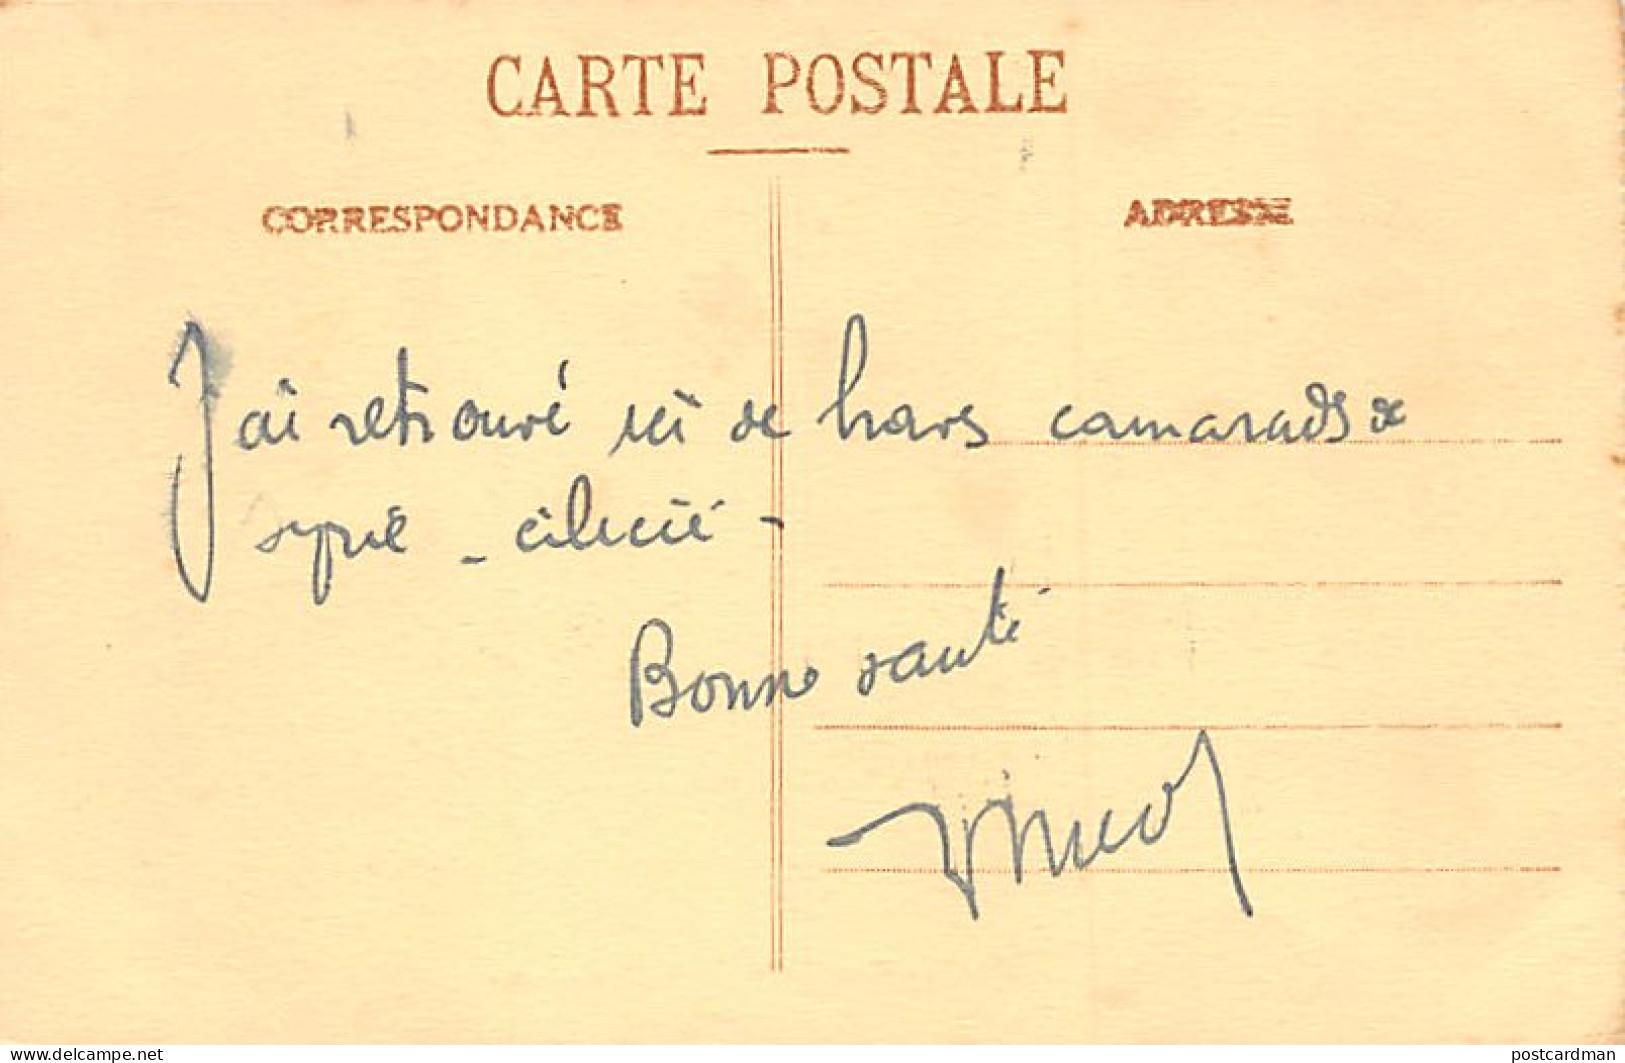 CARTE POSTALE
CORRESPONDANCE
ADRESSE
J'ai retrouvé ici de braves camarades de
syrie - cilicie -
Bonne santé
www.delcampe.net
postcardman